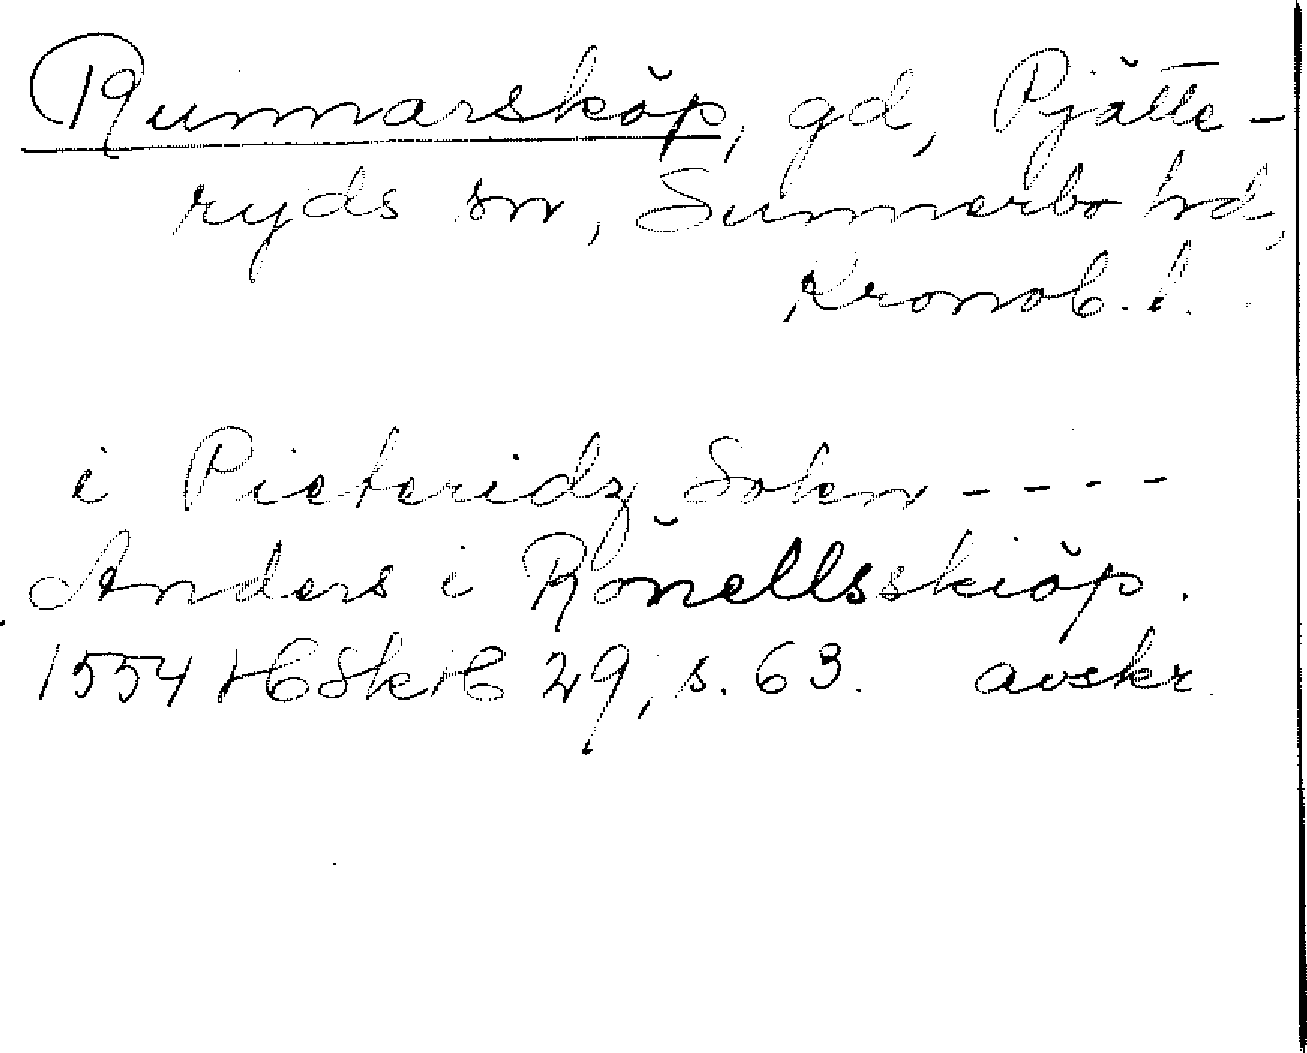 Runnarsköp, gd, Pjätte-
ryds sn, Sunnerbo hd,
Kronob. l.
i Pieteridz Sokn ----
Anders i Rönellsskiöp.
1554 HSkH 29, s. 63. avskr.